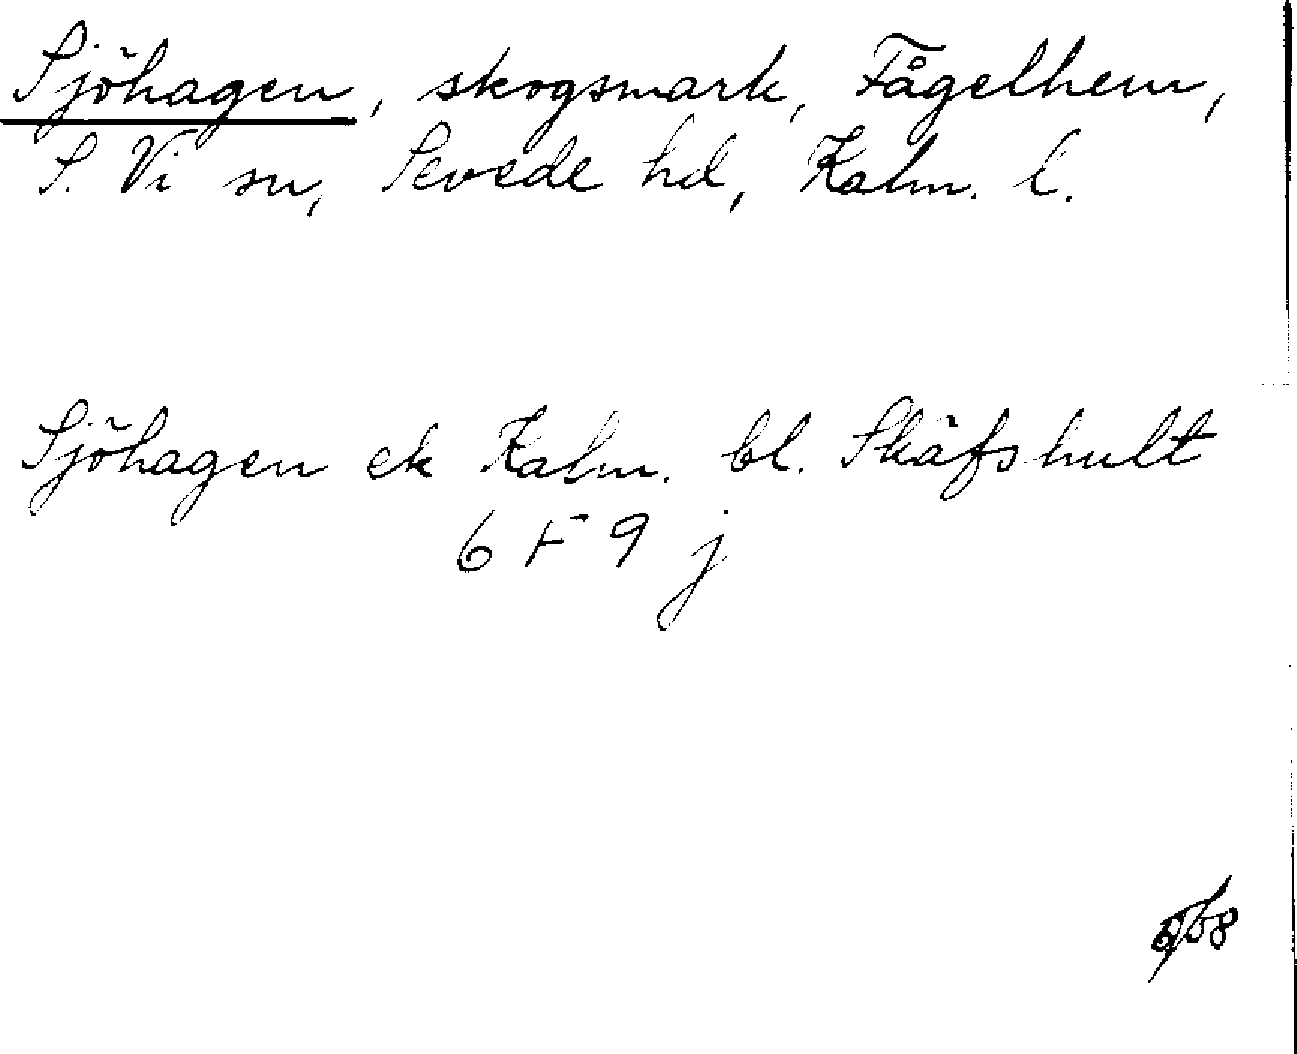 Sjöhagen, skogsmark, Fågelhem,
S. Vi sn, Sevede hd, Kalm. l.
Sjöhagen ek Kalm. bl. Skäfshult
6 F 9 j